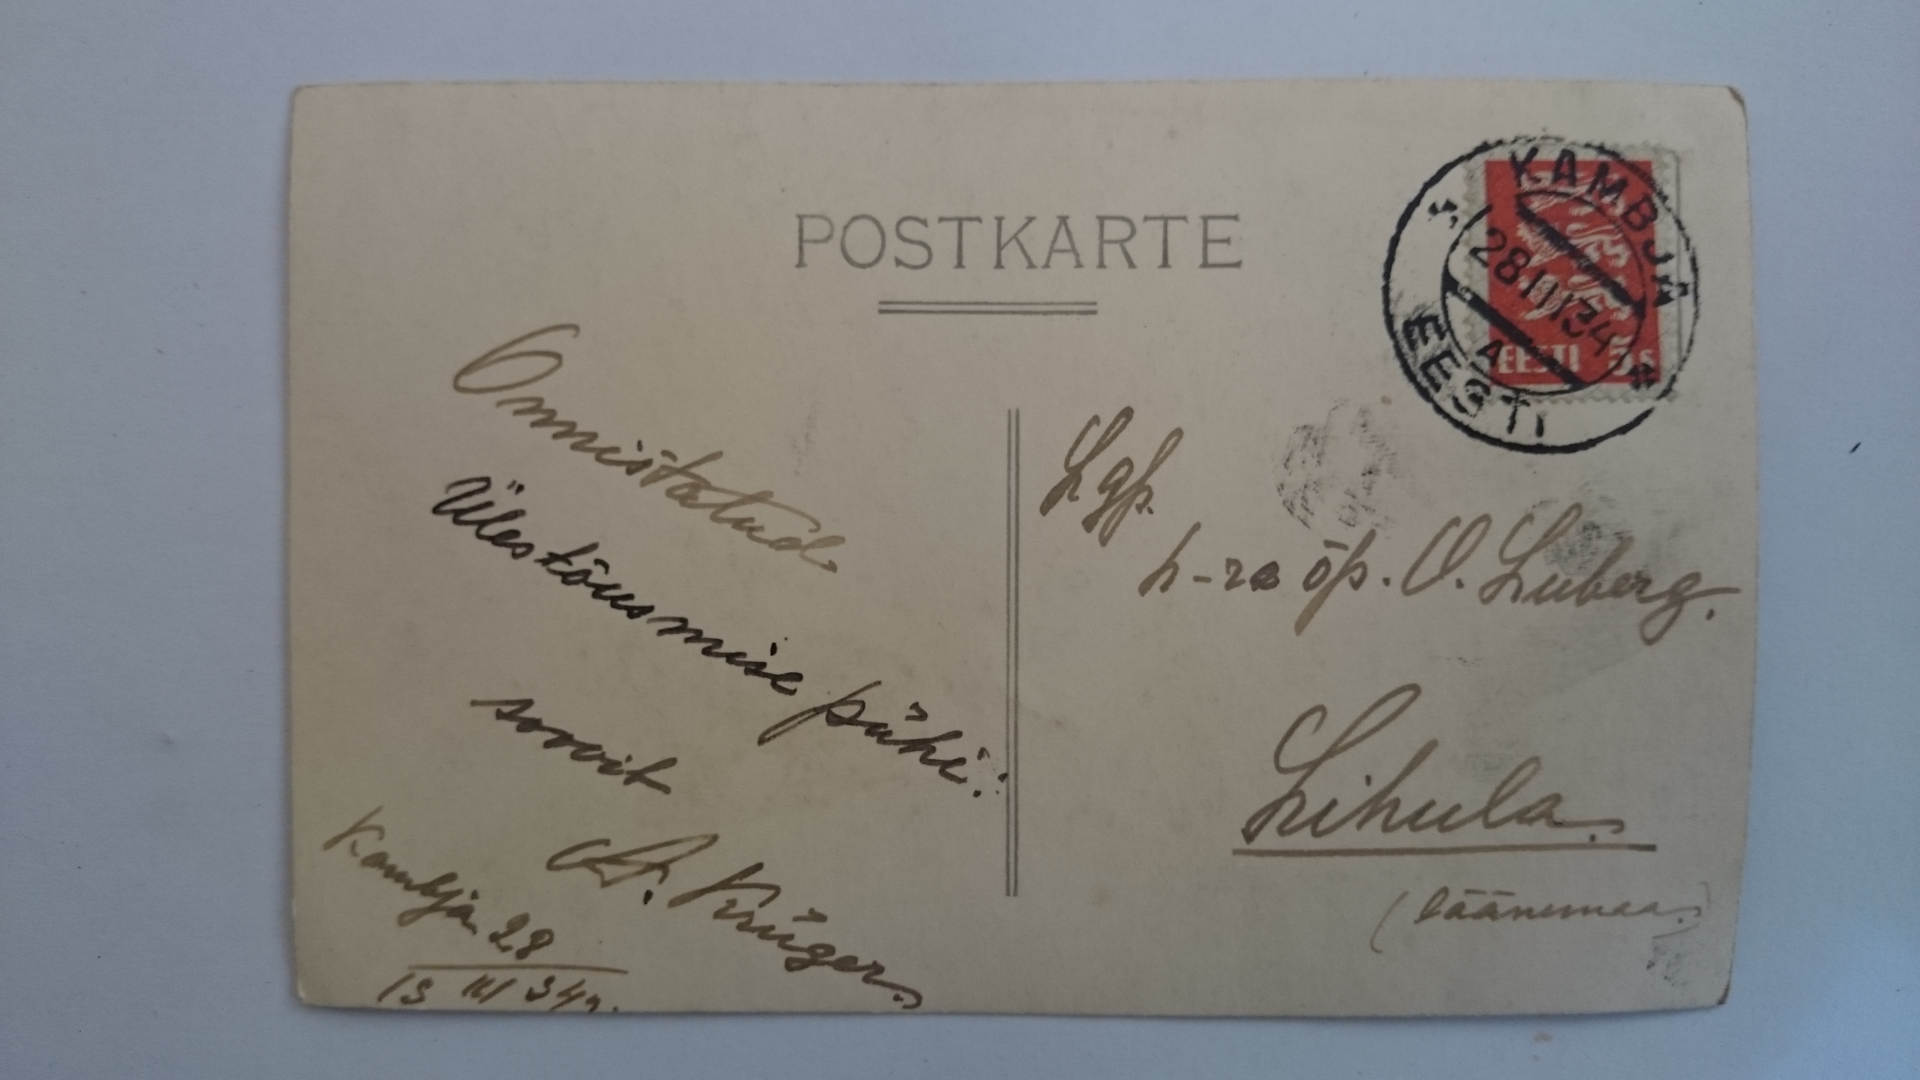 POSTKARTE
KAMBJA
28 III 34
A
EESTI
EESTI 5 s
Õnnistatud
Ülestõusmise pühi!
soovit
A. Krüger.
Kambja 28
III 34a.
Lgp.
h-ra õp. O. Luberg.
Lihula.
(Läänemaa.)